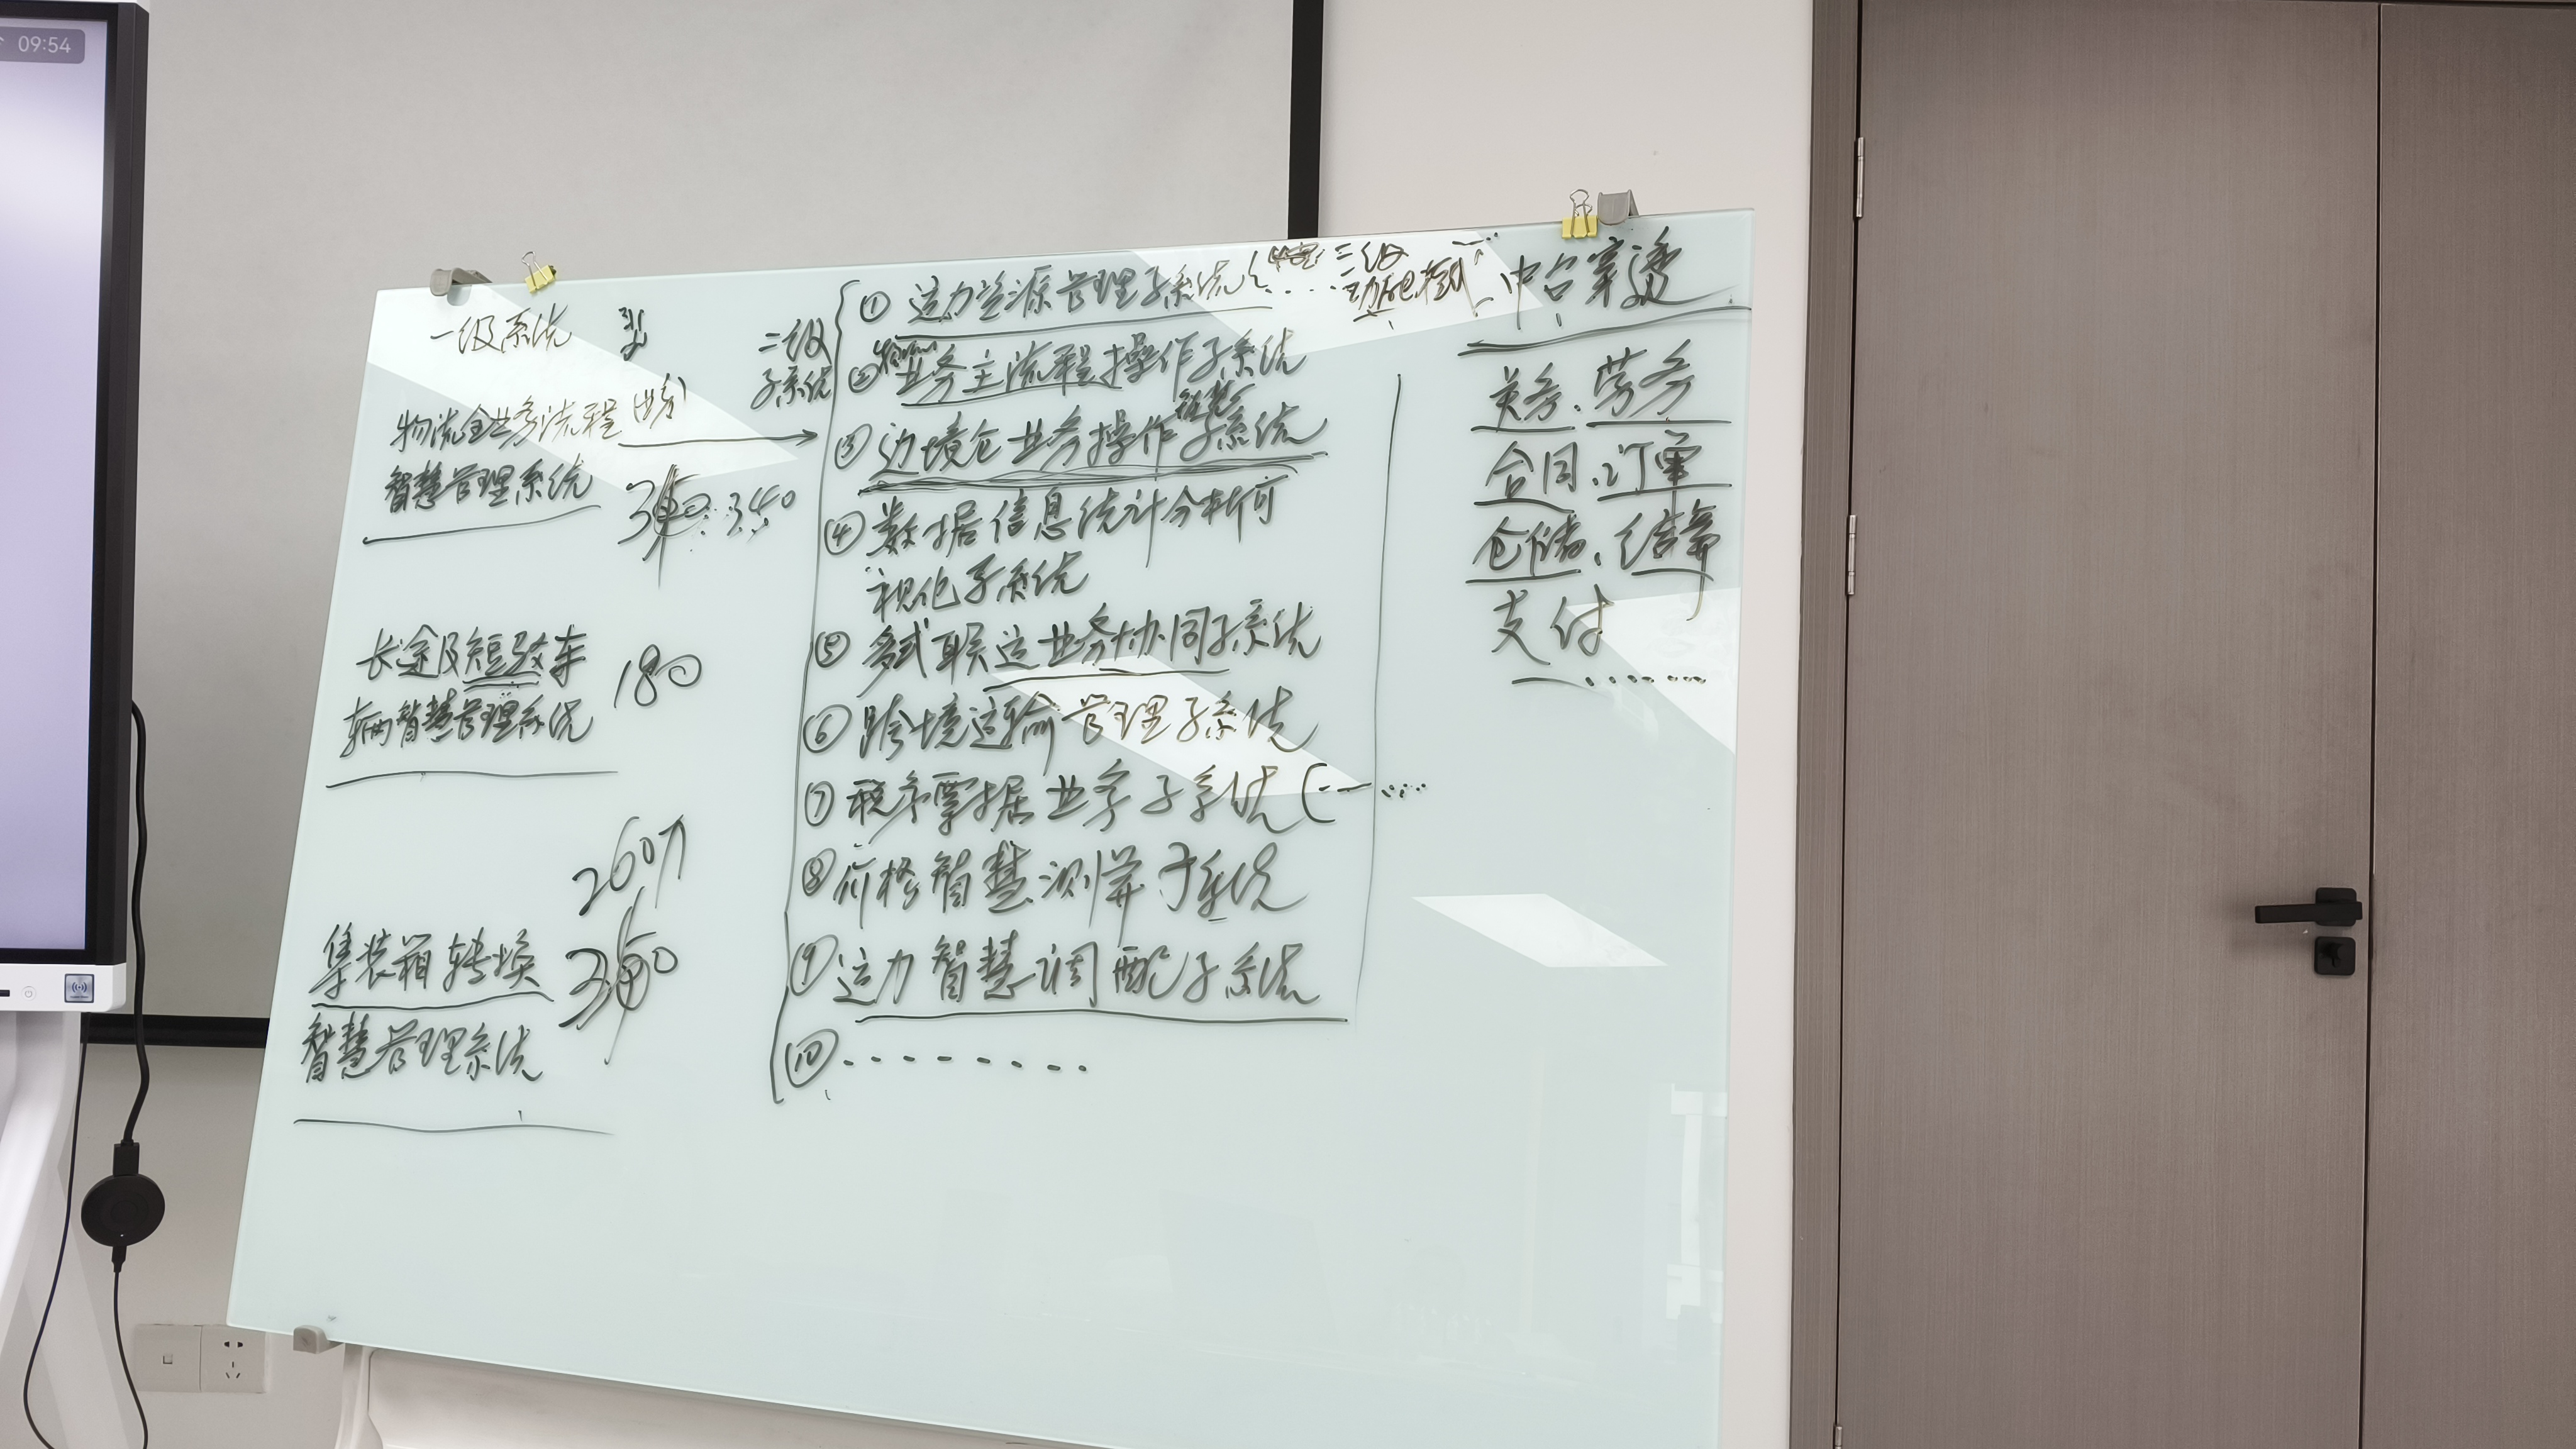 09:54
一级系统
物流全业务流程
智慧管理系统
340
长途及短驳车
辆智慧管理系统
180
260万
集装箱转换
智慧管理系统
二级
子系统
① 运力资源管理子系统
三级
功能模块
② 业务主流程操作子系统
③ 边境仓业务操作子系统
④ 数据信息统计分析可
视化子系统
⑤ 多式联运业务协同子系统
⑥ 跨境运输管理子系统
⑦ 税务票据业务子系统
⑧ 价格智慧测算子系统
⑨ 运力智慧调配子系统
⑩ ………
中台穿透
关务、劳务
合同、订单
仓储、结算
支付